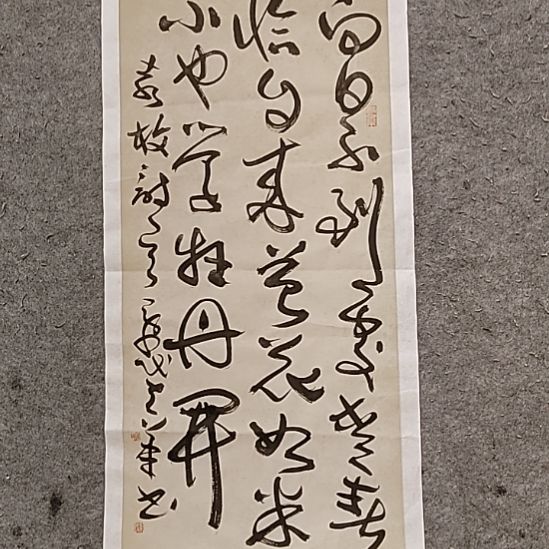 白日不到處青春
恰自来苔花如米
小也学牡丹開
袁枚詩